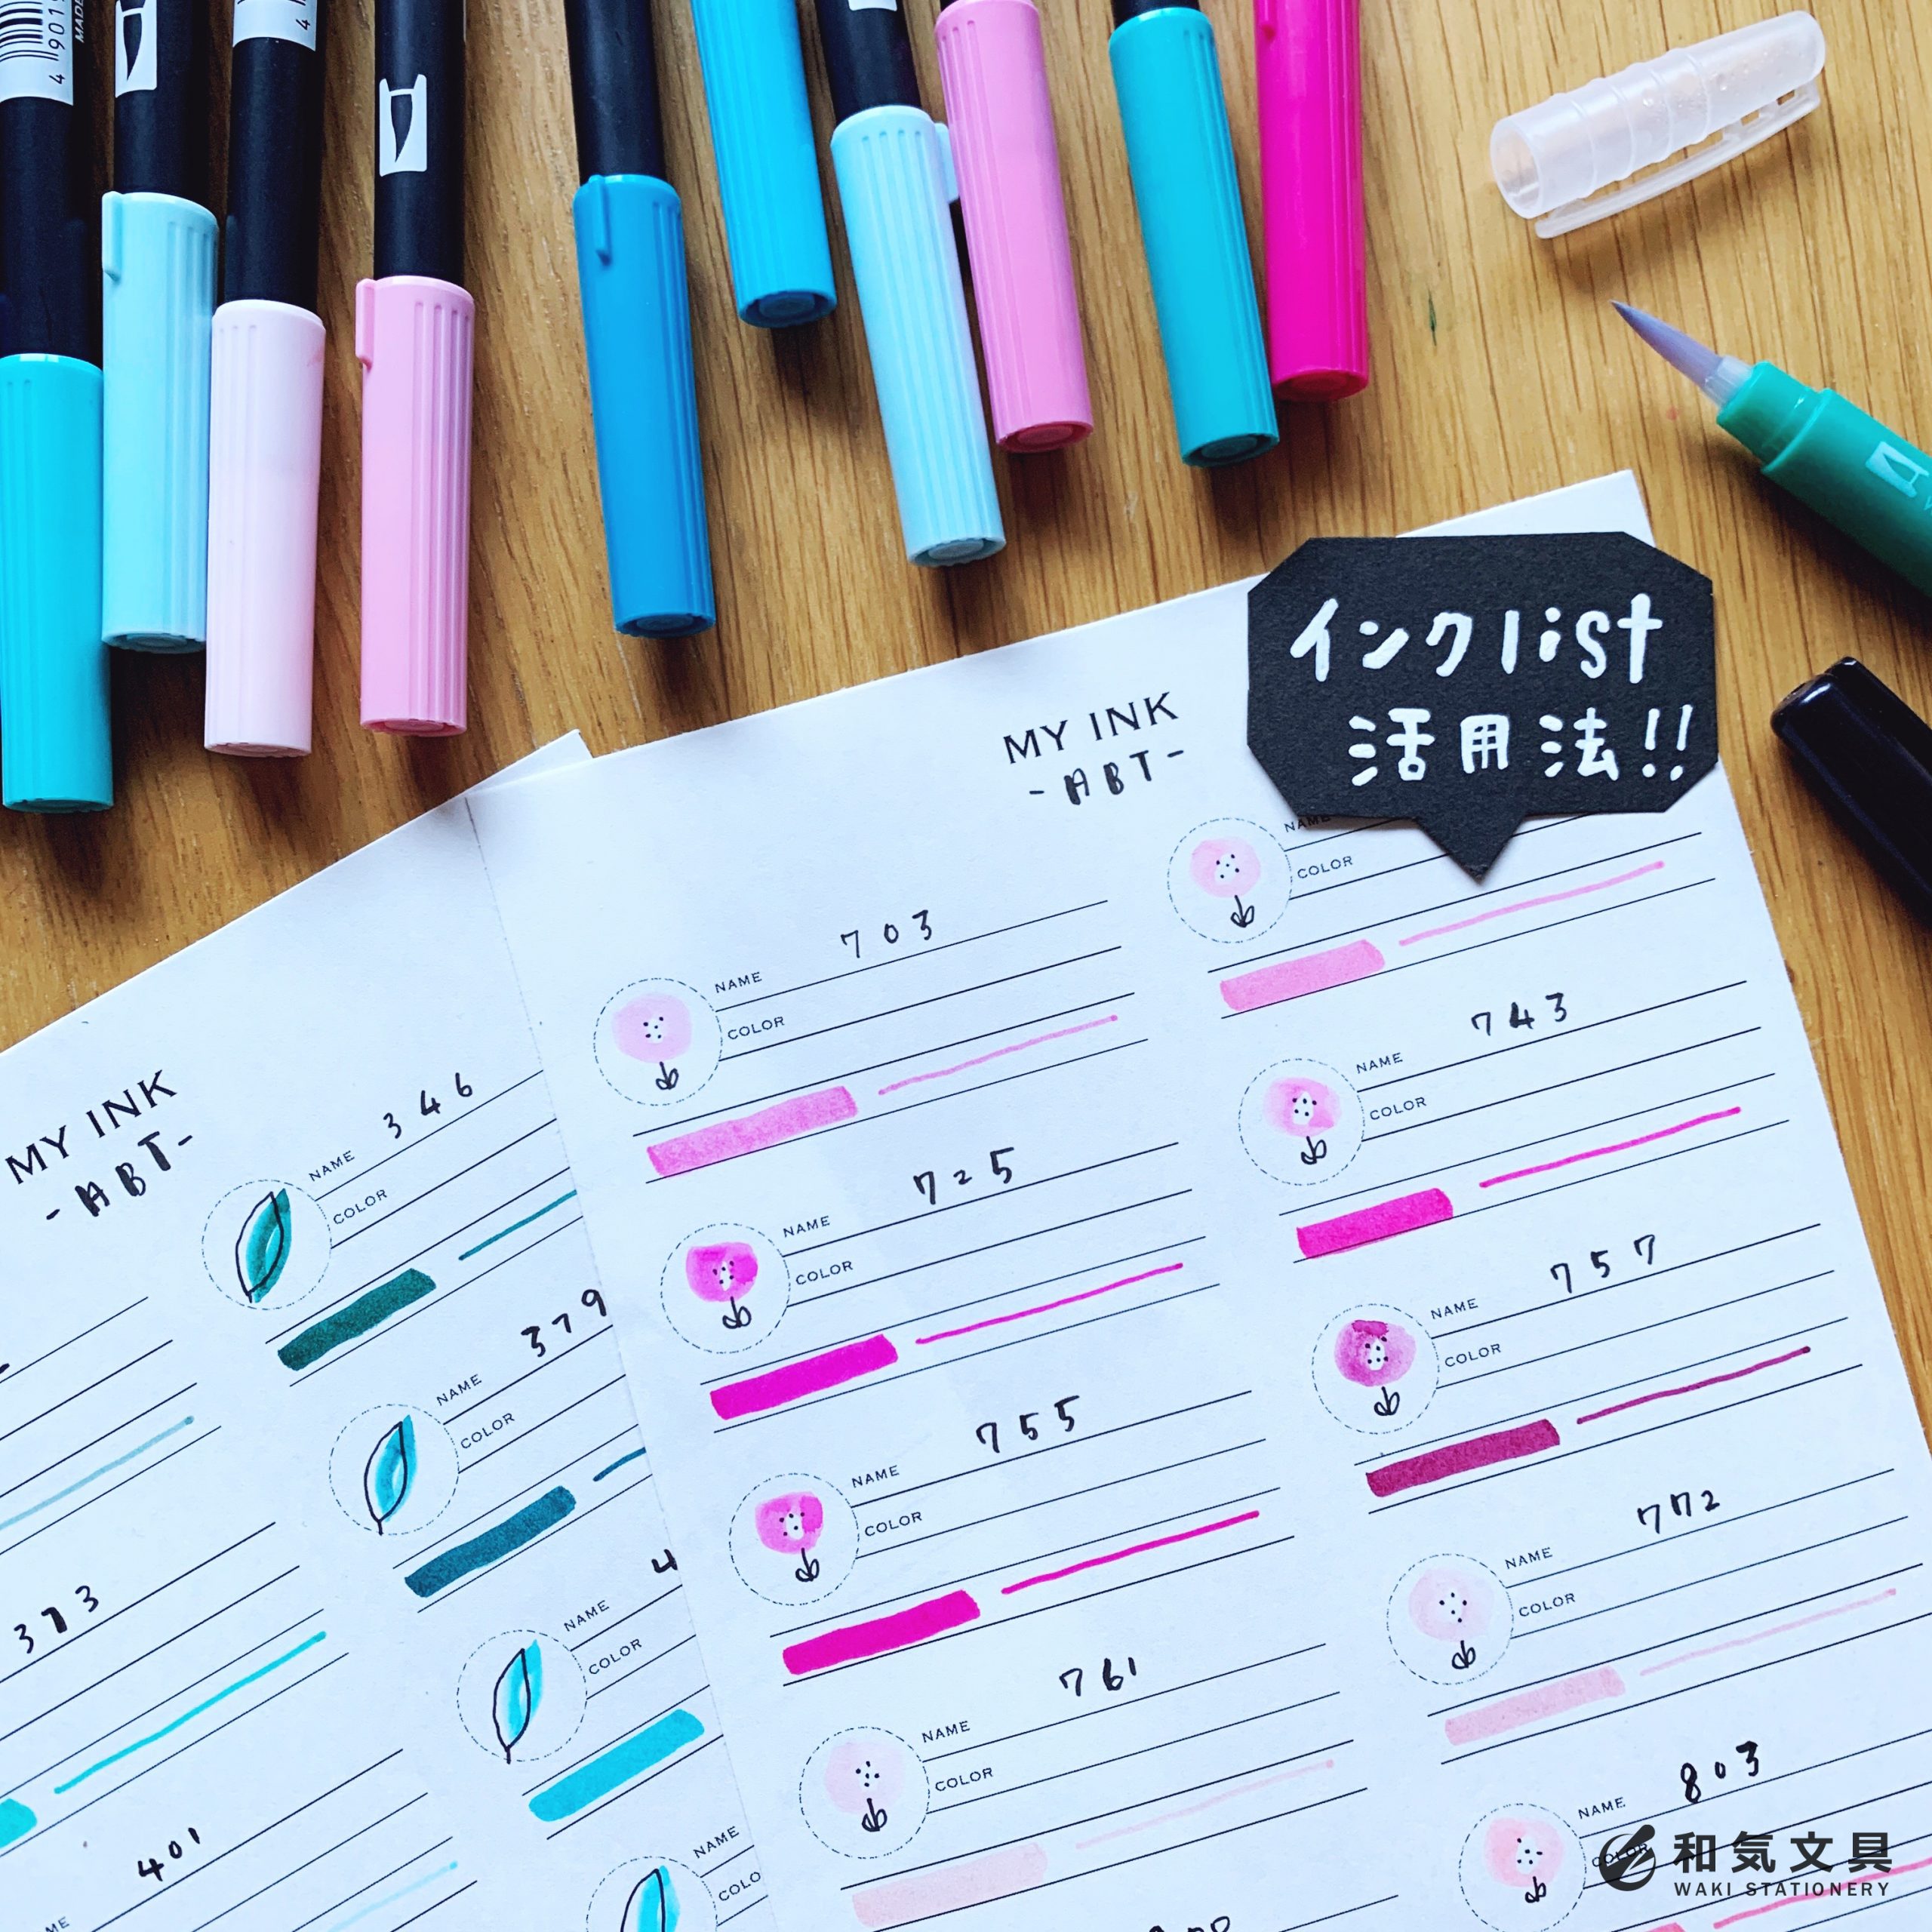 4901
MADE
4
インクlist
活用法!!
MY INK
-ABT-
NAME
COLOR
703
NAME
COLOR
743
NAME
COLOR
725
NAME
COLOR
757
NAME
COLOR
755
NAME
COLOR
772
NAME
COLOR
761
NAME
COLOR
803
NAME
COLOR
MY INK
-ABT-
346
NAME
COLOR
379
NAME
COLOR
373
4
NAME
COLOR
401
NAME
COLO
ME
和気文具
WAKI STATIONERY